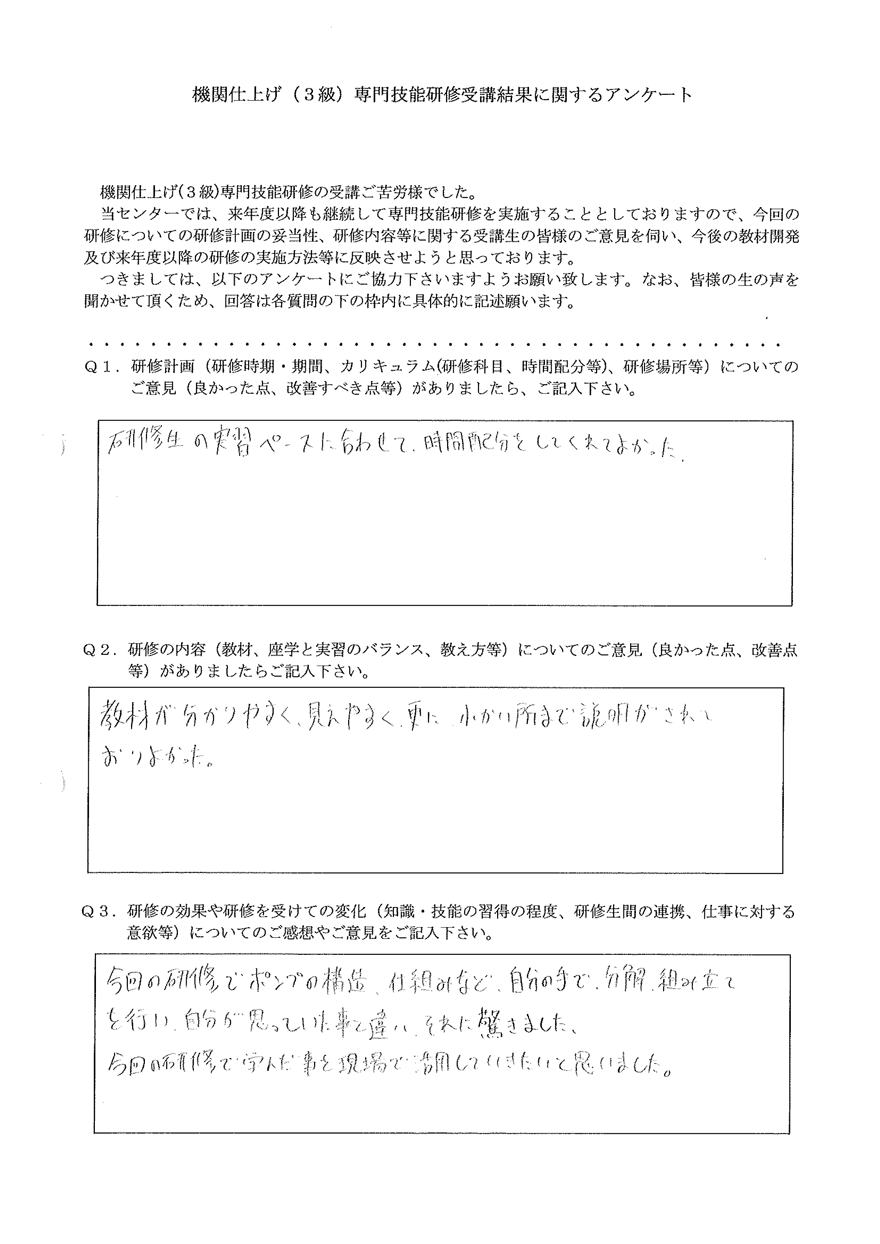 機関仕上げ（３級）専門技能研修受講結果に関するアンケート
機関仕上げ(３級)専門技能研修の受講ご苦労様でした。
当センターでは、来年度以降も継続して専門技能研修を実施することとしておりますので、今回の
研修についての研修計画の妥当性、研修内容等に関する受講生の皆様のご意見を伺い、今後の教材開発
及び来年度以降の研修の実施方法等に反映させようと思っております。
つきましては、以下のアンケートにご協力下さいますようお願い致します。なお、皆様の生の声を
聞かせて頂くため、回答は各質問の下の枠内に具体的に記述願います。
・・・・・・・・・・・・・・・・・・・・・・・・・・・・・・・・・・・・・・・・・・・・・
Ｑ１．研修計画（研修時期・期間、カリキュラム(研修科目、時間配分等)、研修場所等）についての
ご意見（良かった点、改善すべき点等）がありましたら、ご記入下さい。
研修生の実習ペースに合わせて、時間配分をしてくれてよかった。
Ｑ２．研修の内容（教材、座学と実習のバランス、教え方等）についてのご意見（良かった点、改善点
等）がありましたらご記入下さい。
教材が分かりやすく、見えやすく、更に、小かい所まで説明がされて
おりよかった。
Ｑ３．研修の効果や研修を受けての変化（知識・技能の習得の程度、研修生間の連携、仕事に対する
意欲等）についてのご感想やご意見をご記入下さい。
今回の研修でポンプの構造、仕組みなど、自分の手で、分解、組み立て
を行い、自分が思っていた事と違い、それに驚きました、
今回の研修で学んだ事を現場で活用していきたいと思いました。